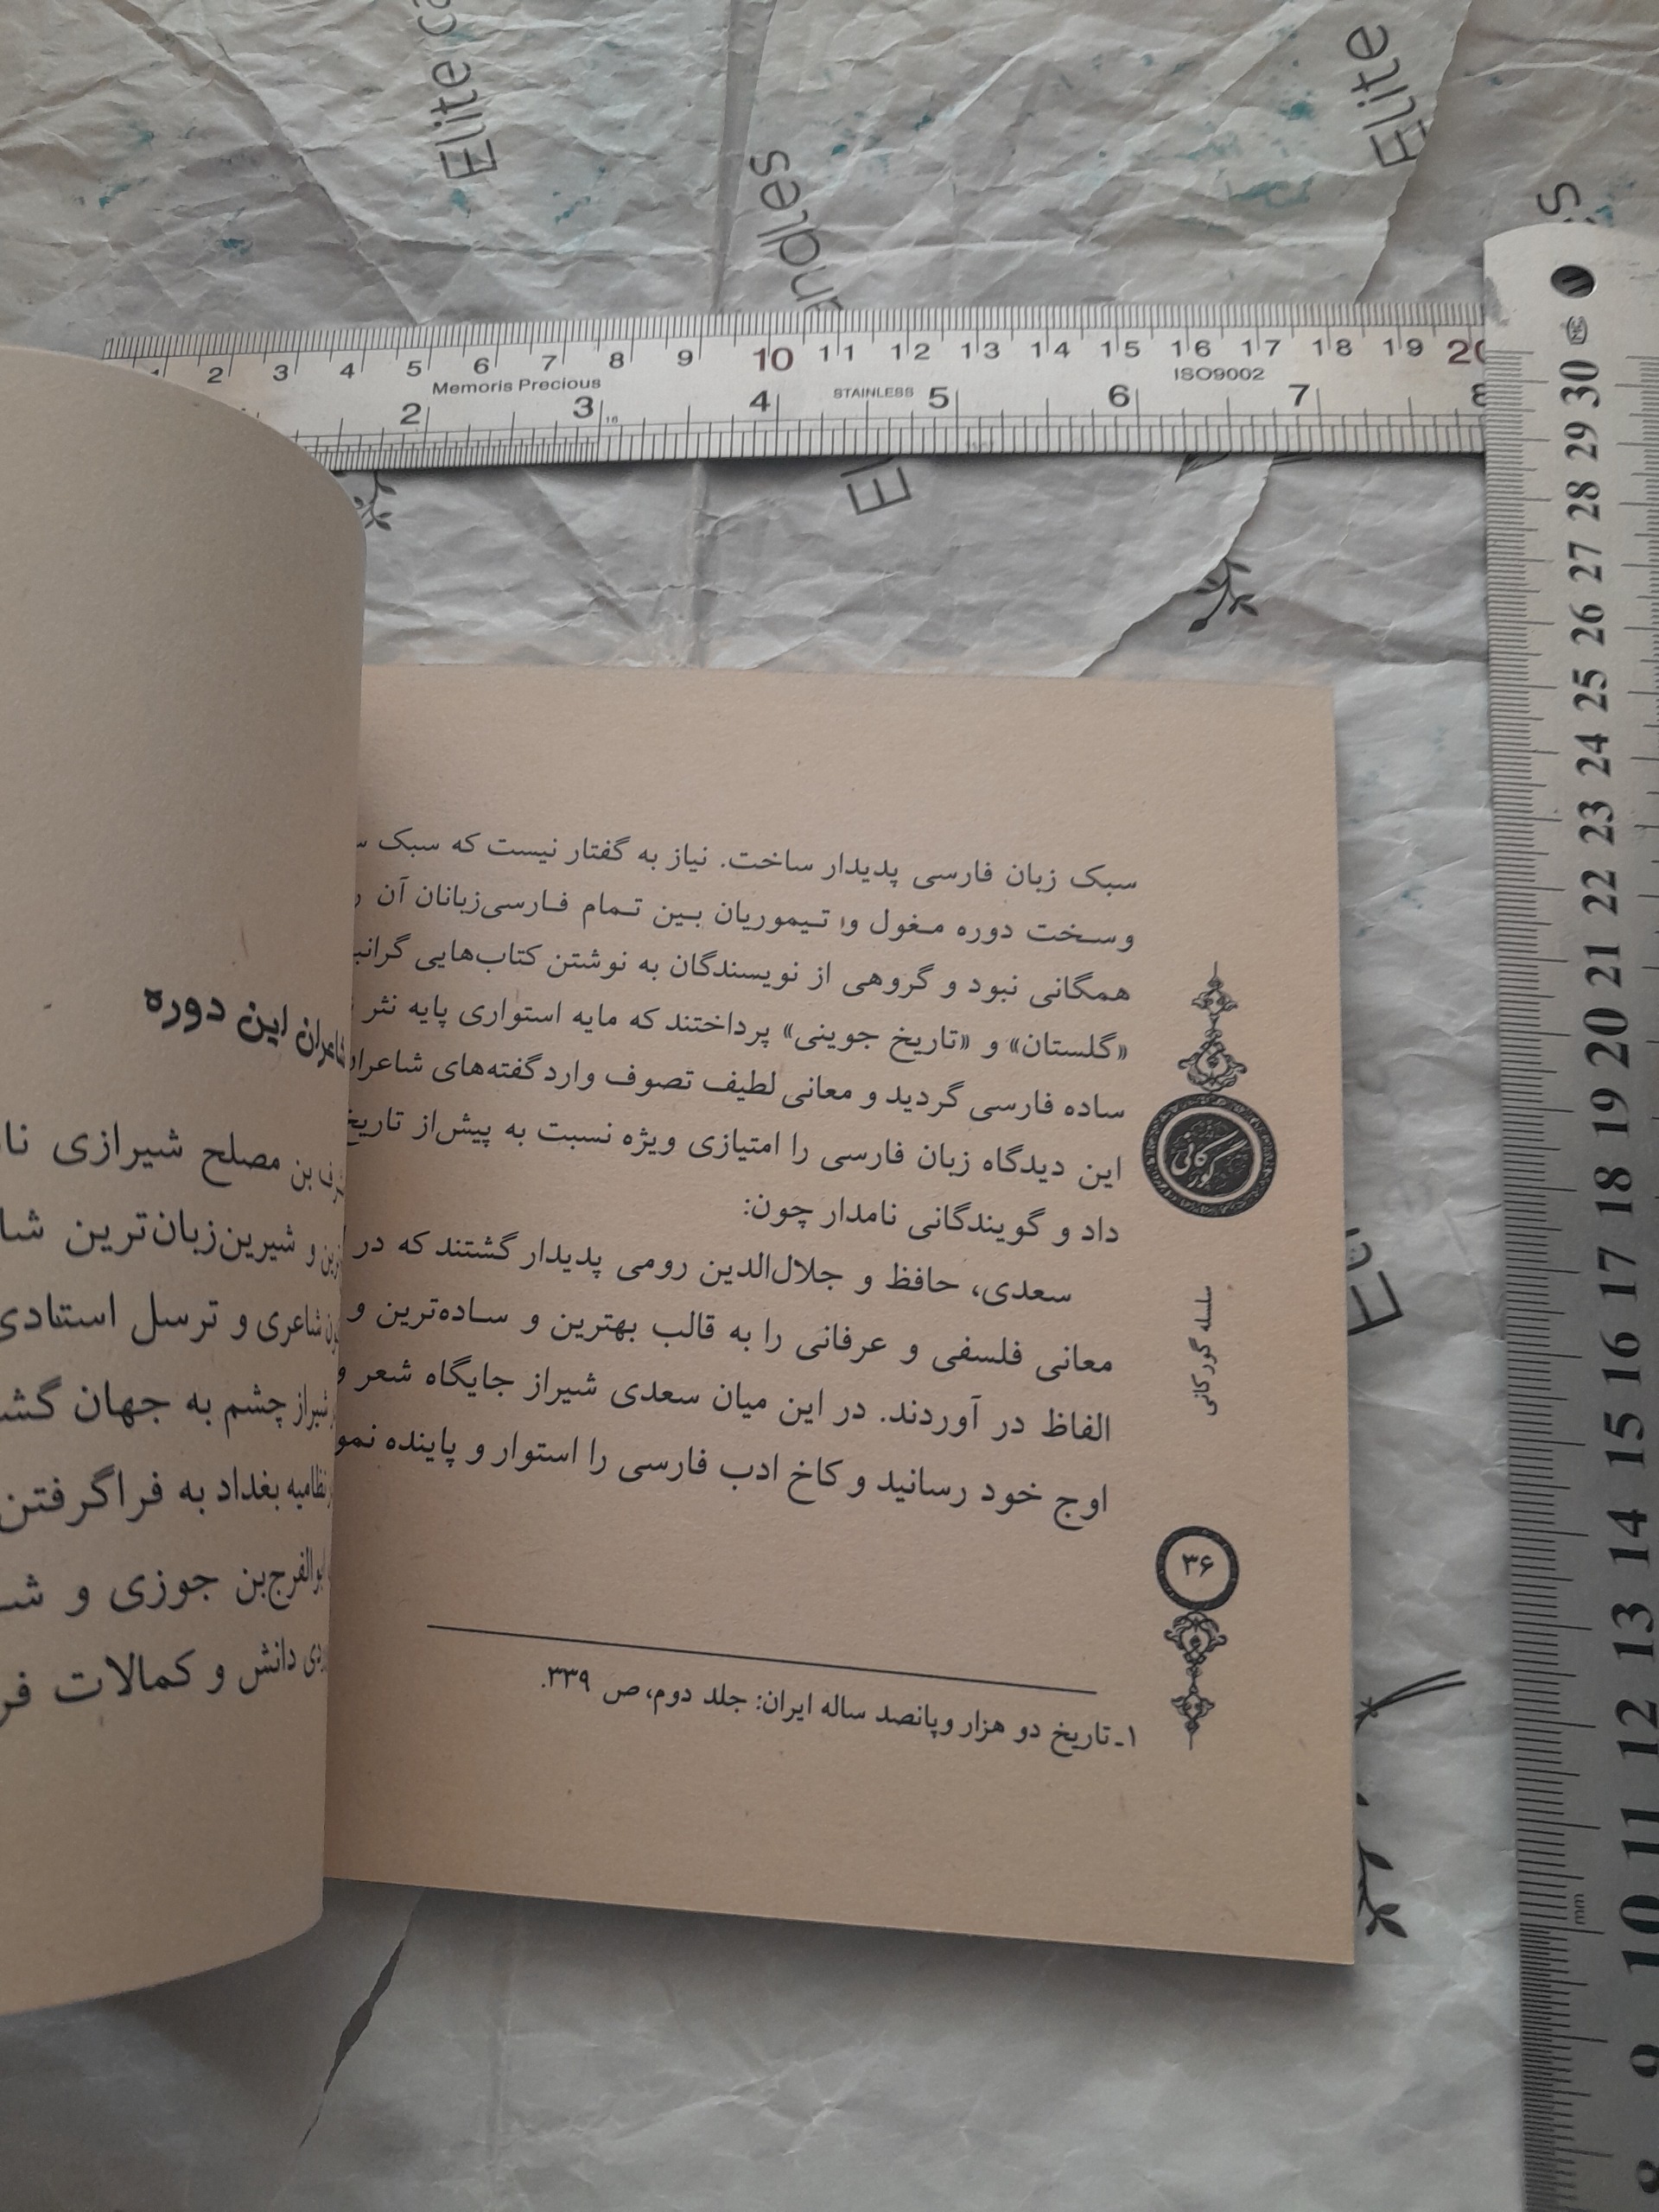 سبک زبان فارسی پدیدار ساخت. نیاز به گفتار نیست که سبک
وسخت دوره مغول و تیموریان بین تمام فارسی‌زبانان آن
همگانی نبود و گروهی از نویسندگان به نوشتن کتاب‌هایی
«گلستان» و «تاریخ جوینی» پرداختند که مایه استواری پایه نثر
ساده فارسی گردید و معانی لطیف تصوف وارد گفته‌های
این دیدگاه زبان فارسی را امتیازی ویژه نسبت به پیش‌از تاریخ
داد و گویندگانی نامدار چون:
سعدی، حافظ و جلال‌الدین رومی پدیدار گشتند که در
معانی فلسفی و عرفانی را به قالب بهترین و ساده‌ترین و
الفاظ در آوردند. در این میان سعدی شیراز جایگاه شعر و
اوج خود رسانید و کاخ ادب فارسی را استوار و پاینده
۱ـ تاریخ دو هزار و پانصد ساله ایران: جلد دوم، ص ۳۳۹.
گورکانی
سلسله گورکانی
۳۶
شاعران این دوره
بن مصلح شیرازی
و شیرین‌زبان‌ترین
شاعری و ترسل استادی
شیراز چشم به جهان
نظامیه بغداد به فراگرفتن
ابوالفرج‌بن جوزی و
دانش و کمالات
Elite
selpun
Elite
1 2 3 4 5 6 7 8 9 10 11 12 13 14 15 16 17 18 19 20
Memoris Precious
STAINLESS
ISO9002
2 3 4 5 6 7 8
16
30 29 28 27 26 25 24 23 22 21 20 19 18 17 16 15 14 13 12 11 10 9 8
mm